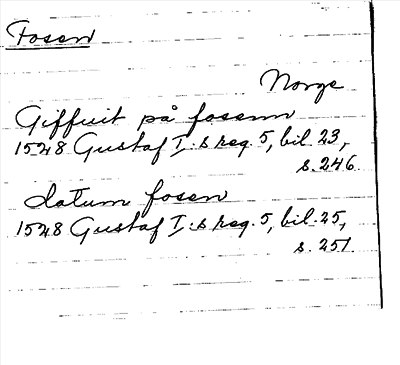 Fosen
Norge
Giffuit på fosenn
1528 Gustaf I:s reg. 5, bil. 23,
s. 246.
datum fosen
1528 Gustaf I:s reg. 5, bil. 25,
s. 251.